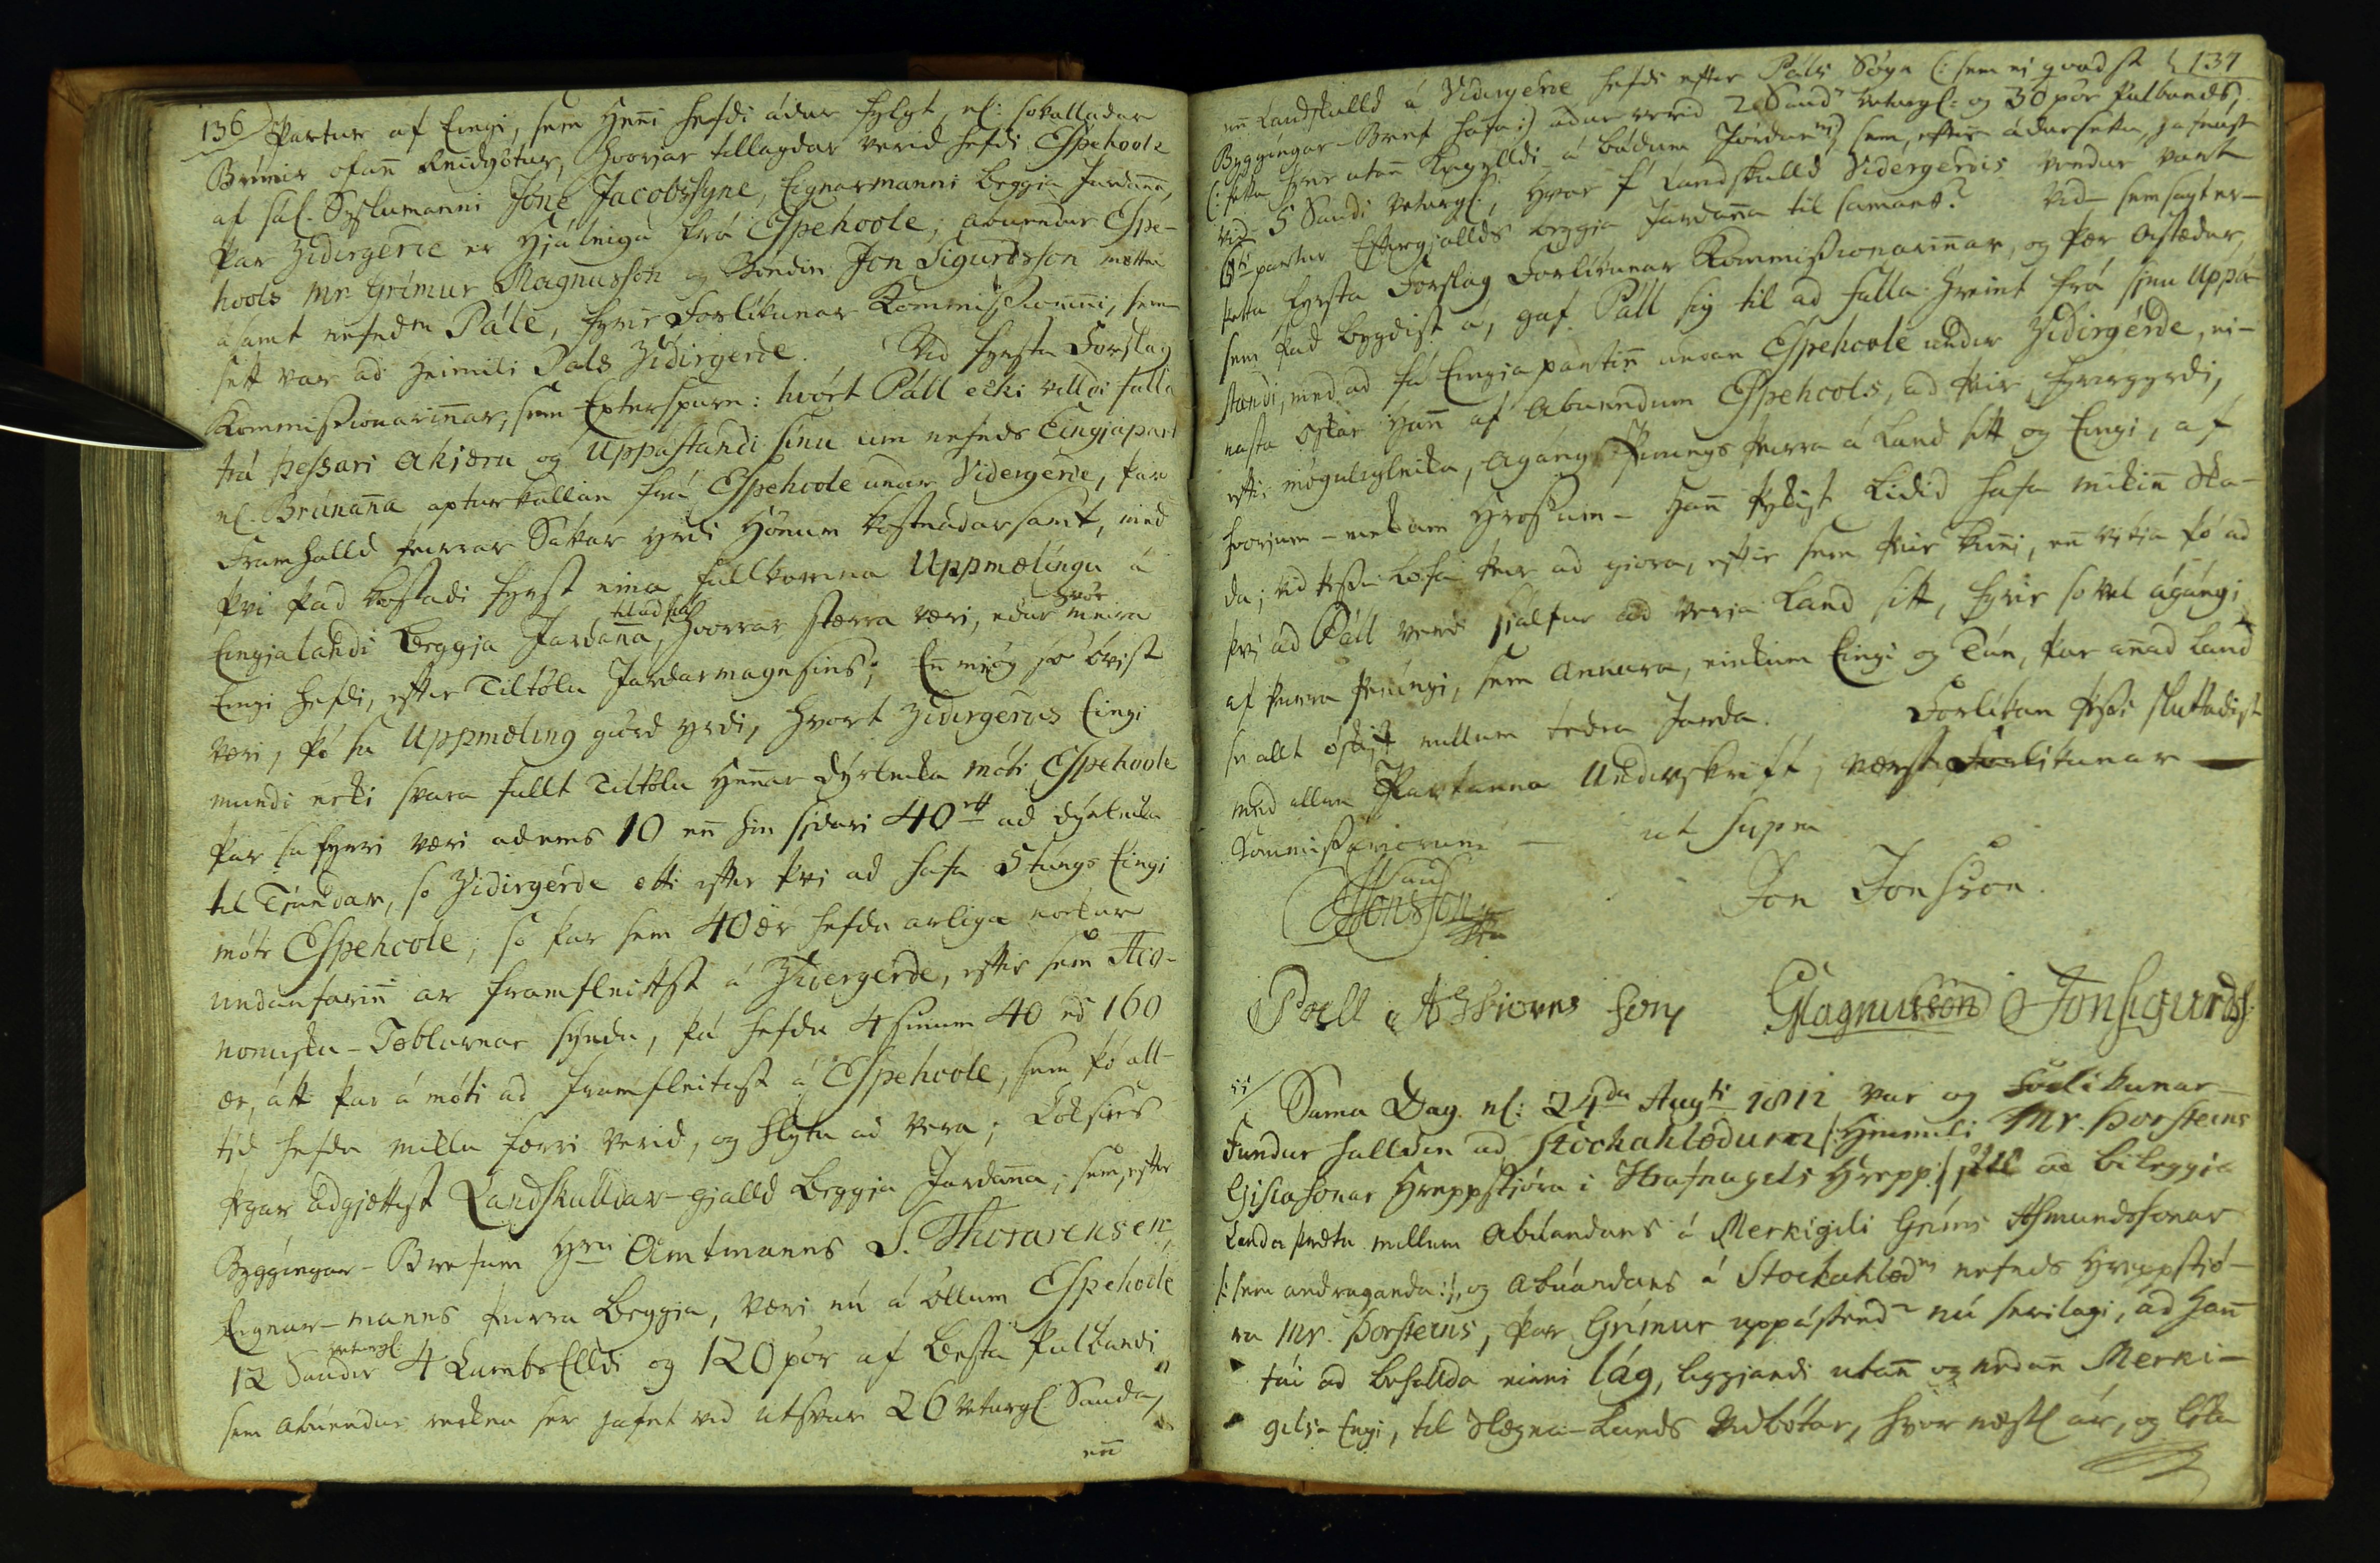 136 Partur af Eingi, sem Henni hefdi ádur fylgt, nl: sokalladar
Brúnir ofan Reidgötur, hvorjar tillagdar verid hefdi Espehoole
af sál. Syslumanni Jóne Jacobssyne, Eignarmanni beggia Jardana,
þar Zidirgérde er Hjáleiga frá Espehoole; abuendur Espe-
hools Mr Grímur Magnusson og Bóndin Jon Sigurdsson mættu
ásamt nefndm Pále, fyrir Forlikunar Kommissioninni, sem
sett var ad Heimili Pals Zidirgerde. Vid fyrsta Forslag
Kommissionarinnar, sem Epterspurn: hvórt Páll ecki villdi falla
frá þessari Akiæru og Uppástandi sínu um nefnds Eingiapart
nl. Brúnana apturkallan frá Espehoole undir Videngerde, þar
Framhalld þeirrar Sakar yrdi Hönum kostnadarsamt, med
þvi þad kostadi fyrst eina fullkomna Uppmælingu á
Eingialandi beggja Jardana, til ad siá hvorrar stærra væri, edur hvör meira
Eingi hefdi, eftir Tiltölu Jardarmagnsins; En mjög so óvist
væri, þó su Uppmæling giörd yrdi, hvort Zidirgerdis Eingi
mundi ecki svara fullt Tiltölu Hennar dýrleika móti Espehoole
þar su fyrri væri adeins 10 enn hin sidari 40 ad dýrleika
til Tiundar, so Zidirgérde ætti eftir þvi ad hafa 5tungs Eingi
móti Espehoole; so þar sem 40 ær hefdu arliga nockur
undanfarin ar framfleittst á Zidergérde, eftir sem Aco-
nomisku-Töblurnar syndu, þá hefdu 4 sinnum 40 ed 160
ær, átt þar á móti ad framfleitast á Espehoole, sem þó all-
tid hefdu miklu færri verid, og hlytu ad vera; Loksins
þegar adgjættist Landskuldar-gialld beggja Jardana, sem, eftir
Byggingar-Brefum Hrn Amtmanns S. Thorarensen,
Eignar-manns þeirra beggia, væri nú á öllum Espehoole
12 Saudir veturgl. 4 LambsElldi og 120 pör af besta Pulsbandi
sem abuendur reikna ser jafnt vid útsvar 26 veturgl Sauda,
enn
137
enn Landskulld á Vidirgerde hefdi eftir Páls Sögn (: sem ei gvadst
Byggingar-Bref hafa :) adur verid 2 Saudr veturgl: og 30 pör Pulsbands,
(: þetta fyrir utan Kúgilldi á bádum Jördunum) sem, eftir ádursettu, jafnast
vid 5 Saudi veturgl, hvar f Landskulld Videngerdis vendur vart
6ti partur Eftirgjallds beggja Jardana til samans? Vid - sem sagt er -
þetta fyrsta Forslag Forlikunar Kommissionarinnar, og þær Astædur,
sem þad bygdist á, gaf Páll sig til ad falla hreint frá sinu Uppá-
standi, med ad fá Eingiapartin undan Espehoole undir Zidirgérde, ei-
nasta óskar Hann af abuendum Espehools, ad þeir fyrirgyrdi,
eftir mögulegleika, Agángs Penings þeirra á Land sitt og Eingi, af
hvorjum - einkum Hrossum - Hann þykist lidid hafa mikinn Ska-
da; vid þessu lofa þeir ad giora, eftir sem þeir kunni, enn vitja þó ad
þvi ad Páll verdi sjalfur ad verja Land sitt, fyrir so vel ágángi
af þeirra Peningi, sem Annara, einkum Eingi og Tún, þar annad Land
se allt óskipt millum tedra Jarda. Forlikun þessi sluttadist
med allra Partanna Underskrift, næst Forlikunar
Kommissariorum - ut supra
JJonsson
Jon Jonsson.
Poell Asbiorns Sony GMagnusson JonSigurds:
Sama Dag nl: 24da Augti 1812 var og Forlikunar-
Fundur halldin ad Stockahlödum /: Heimili Mr. Þorsteins
Gislasonar Hreppstjóra i Hrafnagils Hrepp :/ til ad bileggja
Landaþrætu millum Abúandans á Merkigili Gríms Asmundssonar
/: sem andraganda :/, og Abúandans á Stockahlödm nefnds Hreppstjó-
ra Mr. Þorsteins, þar Grímur uppástendr nú serilagi, ad Hann
fái ad behallda einni lág, liggjandi utan og nedan Merki-
gils-Engi, til Slægna-Lands Vidbótar, hvör næstl ár, og